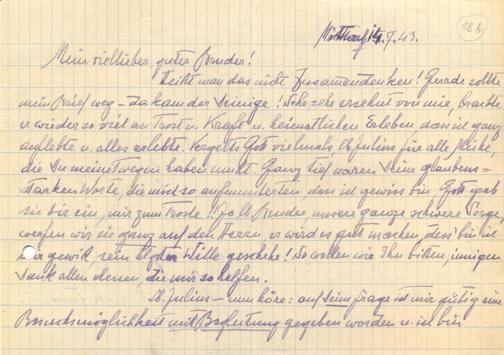 18b
14.7.43.
Mein viellieber, guter Bruder!
Heißt man das nicht Zusamendenken! Gerade sollte
mein Brief weg – da kam der Deinige! Sehr, sehr ersehnt von mir, brachte
er wieder so viel an Trost u. Kraft u. heimatlichen Erleben, dass ich ganz
auflebte u. alles erlebte. Vergelts Gott vielmals, lb. Julius für alle Mühe,
die Du meinetwegen haben musst. Ganz tief waren Deine glaubens=
starken Worte, die mich so aufmunterten, dass ich gewiss bin, Gott gab
sie Dir ein, mir zum Troste! Ja lb. Bruder, unsere ganze schwere Sorge,
werfen wir sie ganz auf den Herrn, er wird es gut machen, dess' bin ich
gewiß, sein hlgster Wille geschehe! So wollen wir Ihn bitten, innigen
Dank allen denen, die mir so helfen.
Lb. Julius – nun höre: auf Deine Frage ist mir gütig eine
Besuchsmöglichkeit mit Begleitung gegeben worden u. ich bin